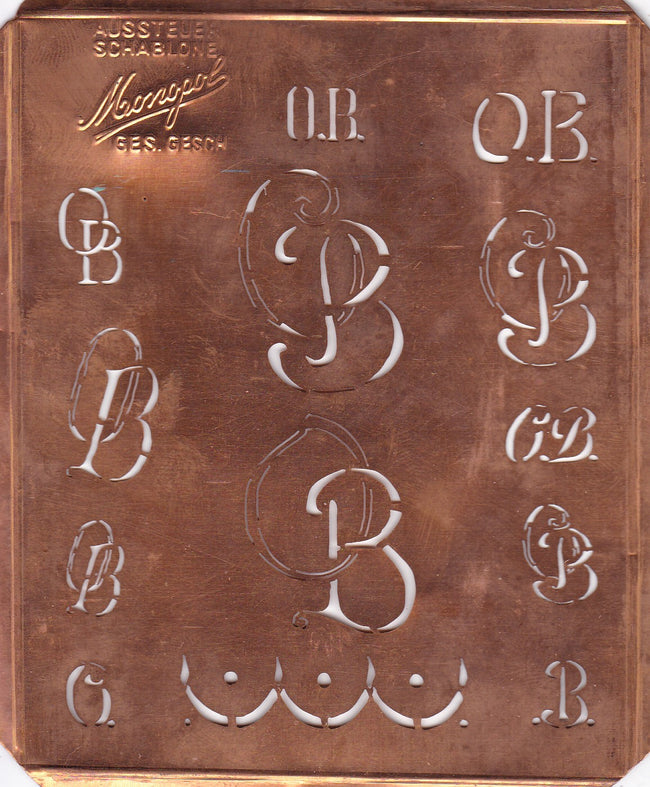 AUSSTEUER
SCHABLONE
Monopol
GES. GESCH
O.B.
O.B.
OB
OB
OB
OB
O.B.
OB
OB
OB
O.
B.